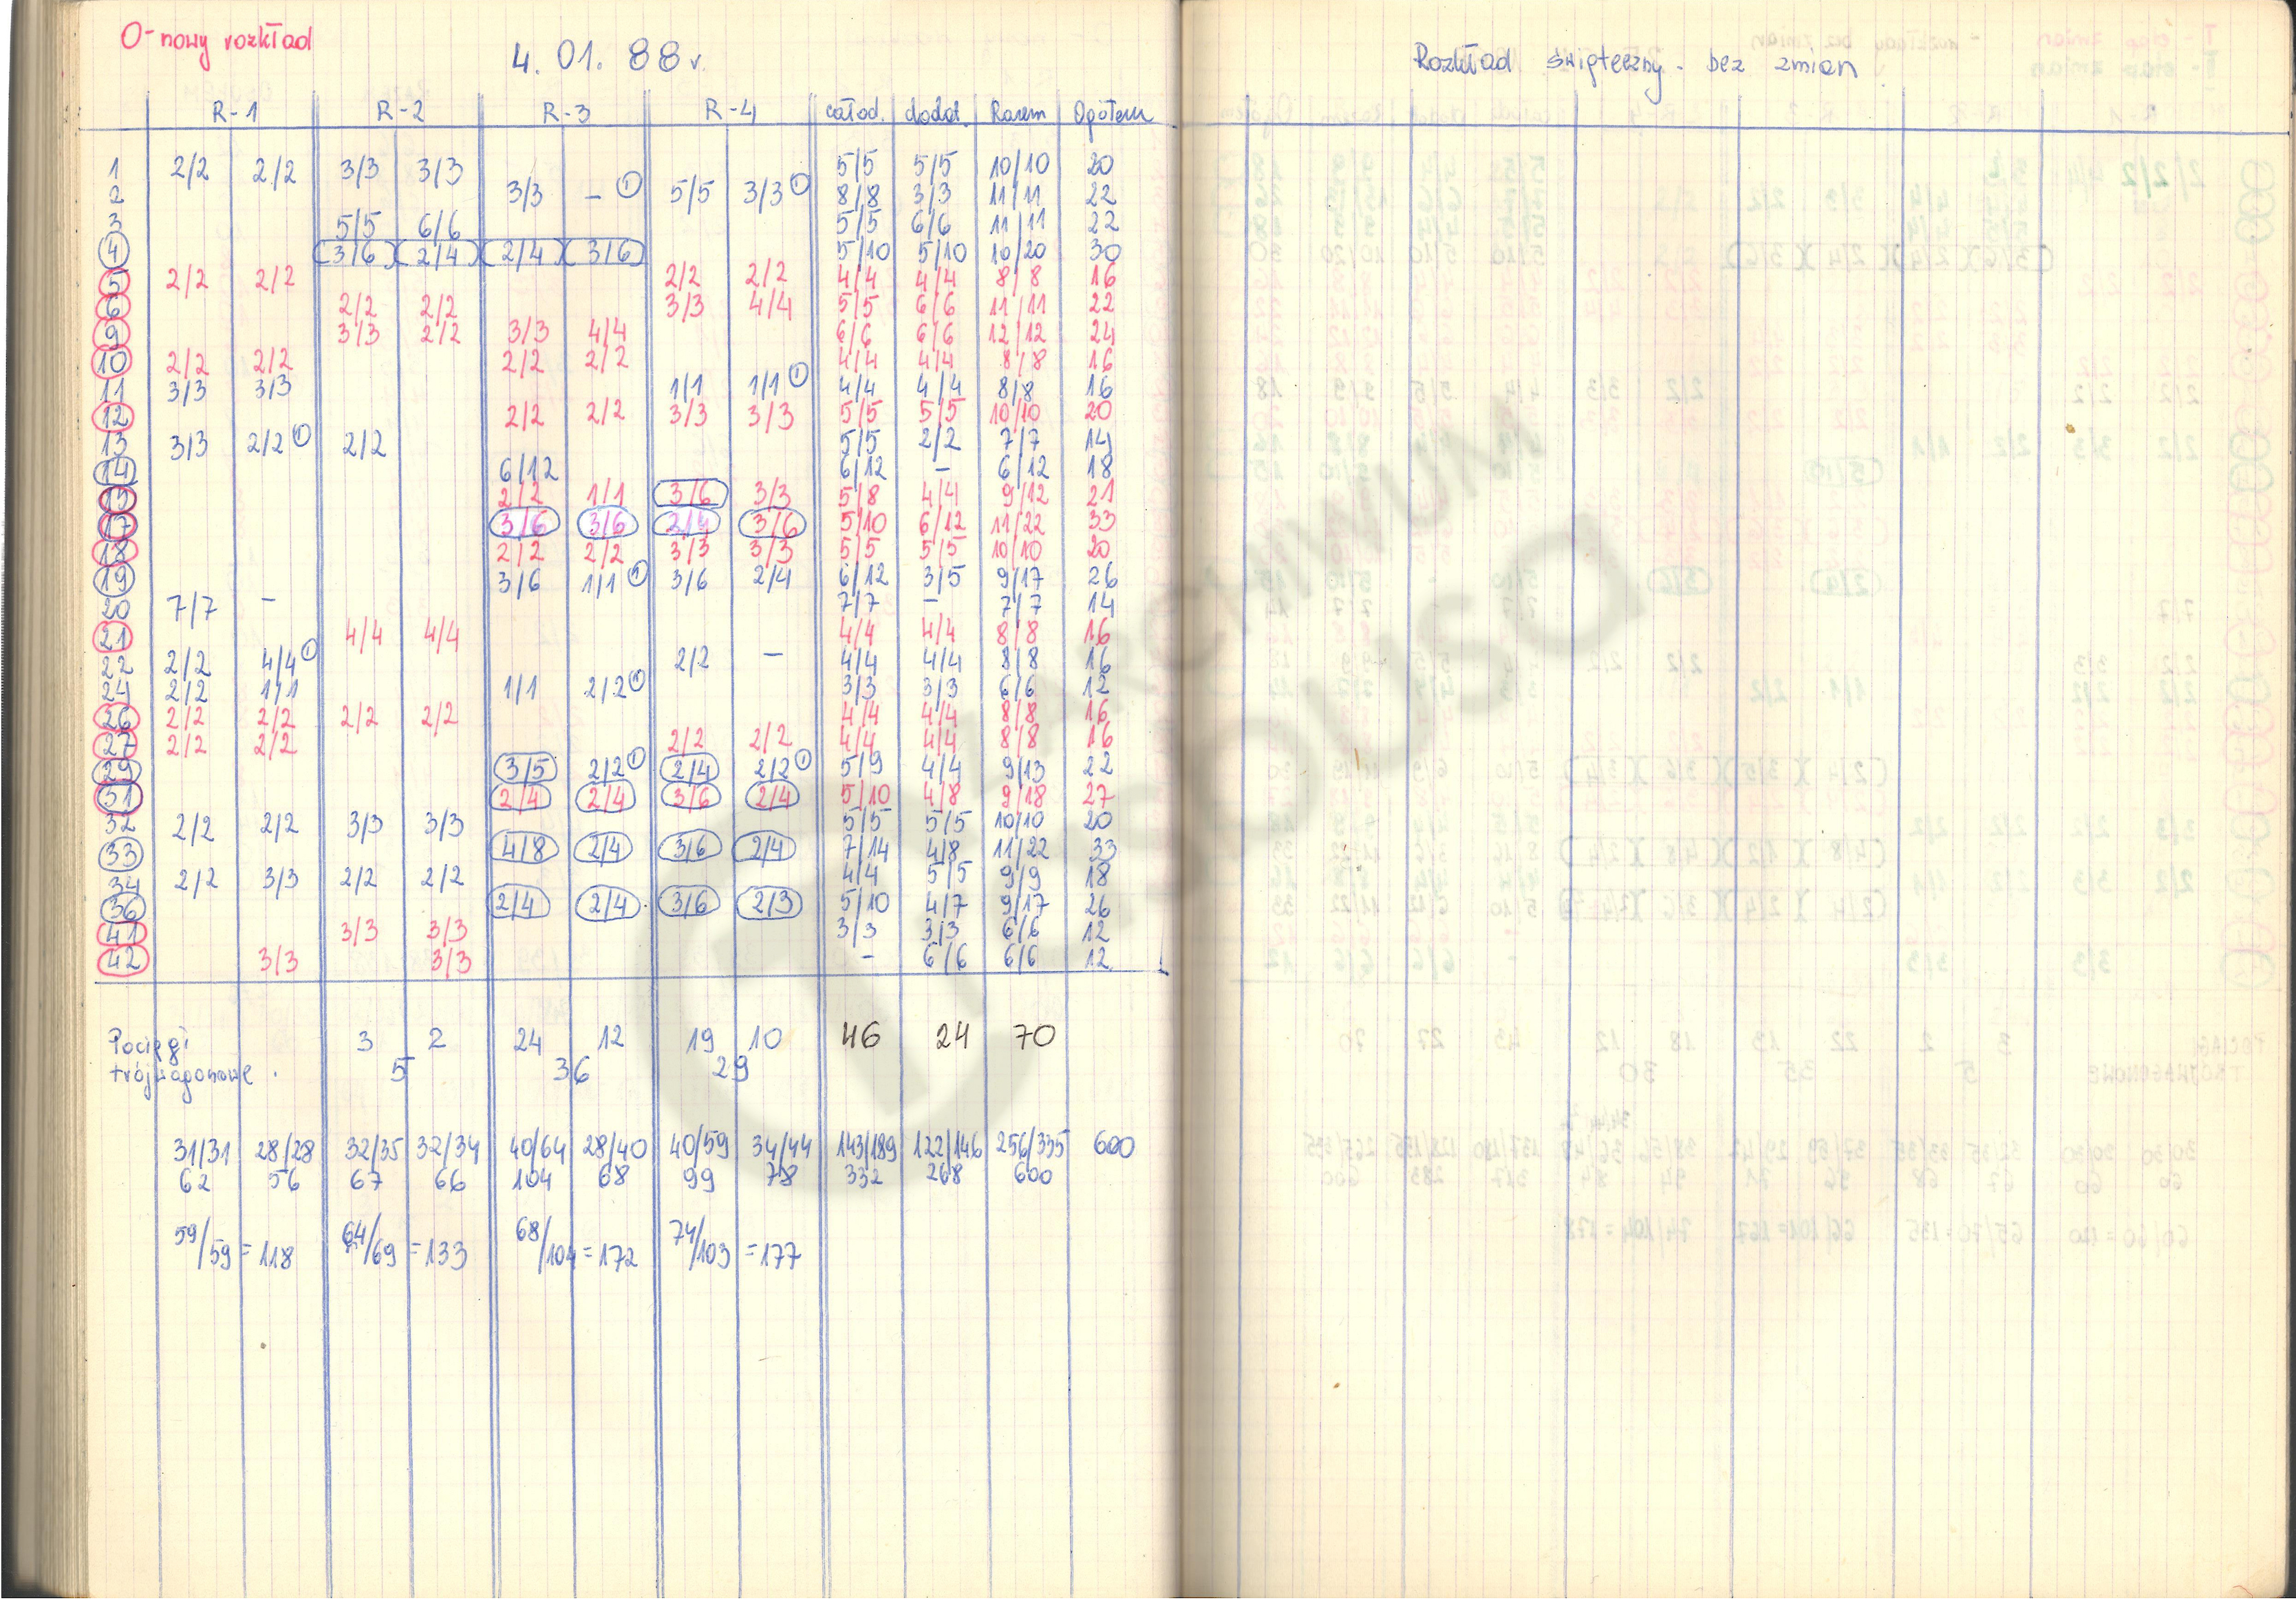 O-nowy rozkład
4. 01. 88 r.
R-1 R-2 R-3 R-4 całod. dodat. Razem Ogółem
1 2/2 2/2 3/3 3/3 5/5 5/5 10/10 20
2 3/3 – ① 5/5 3/3 ① 8/8 3/3 11/11 22
3 5/5 6/6 5/5 6/6 11/11 22
4 3/6 2/4 2/4 3/6 5/10 5/10 10/20 30
5 2/2 2/2 2/2 2/2 4/4 4/4 8/8 16
6 2/2 2/2 3/3 4/4 5/5 6/6 11/11 22
9 3/3 2/2 3/3 4/4 6/6 6/6 12/12 24
10 2/2 2/2 2/2 2/2 4/4 4/4 8/8 16
11 3/3 3/3 1/1 1/1 ① 4/4 4/4 8/8 16
12 2/2 2/2 3/3 3/3 5/5 5/5 10/10 20
13 3/3 2/2 ① 2/2 5/5 2/2 7/7 14
14 6/12 6/12 – 6/12 18
2/2 1/1 3/6 3/3 5/8 4/4 9/12 21
17 3/6 3/6 2/4 3/6 5/10 6/12 11/22 33
18 2/2 2/2 3/3 3/3 5/5 5/5 10/10 20
19 3/6 1/1 ① 3/6 2/4 6/12 3/5 9/17 26
20 7/7 – 7/7 – 7/7 14
21 4/4 4/4 4/4 4/4 8/8 16
22 2/2 4/4 ① 2/2 – 4/4 4/4 8/8 16
24 2/2 1/1 1/1 2/2 ① 3/3 3/3 6/6 12
26 2/2 2/2 2/2 2/2 4/4 4/4 8/8 16
27 2/2 2/2 2/2 2/2 4/4 4/4 8/8 16
29 3/5 2/2 ① 2/4 2/2 ① 5/9 4/4 9/13 22
31 2/4 2/4 3/6 2/4 5/10 4/8 9/18 27
32 2/2 2/2 3/3 3/3 5/5 5/5 10/10 20
33 4/8 2/4 3/6 2/4 7/14 4/8 11/22 33
34 2/2 3/3 2/2 2/2 4/4 5/5 9/9 18
36 2/4 2/4 3/6 2/3 5/10 4/7 9/17 26
41 3/3 3/3 3/3 3/3 6/6 12
42 3/3 3/3 – 6/6 6/6 12
Pociągi 3 2 24 12 19 10 46 24 70
trójwagonowe. 5 36 29
31/31 28/28 32/35 32/34 40/64 28/40 40/59 34/44 143/189 122/146 256/335 600
62 56 67 66 104 68 99 78 332 268 600
59/59 = 118 64/69 = 133 68/104 = 172 74/103 = 177
Rozkład świąteczny - bez zmian